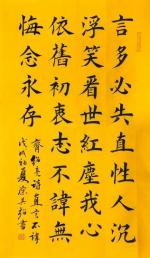 言多必失直性人沉
浮笑看世紅塵我心
依舊初衷志不諱無
悔念永存
齊紹亮詩直言不諱
戊戌初夏徐英紹書